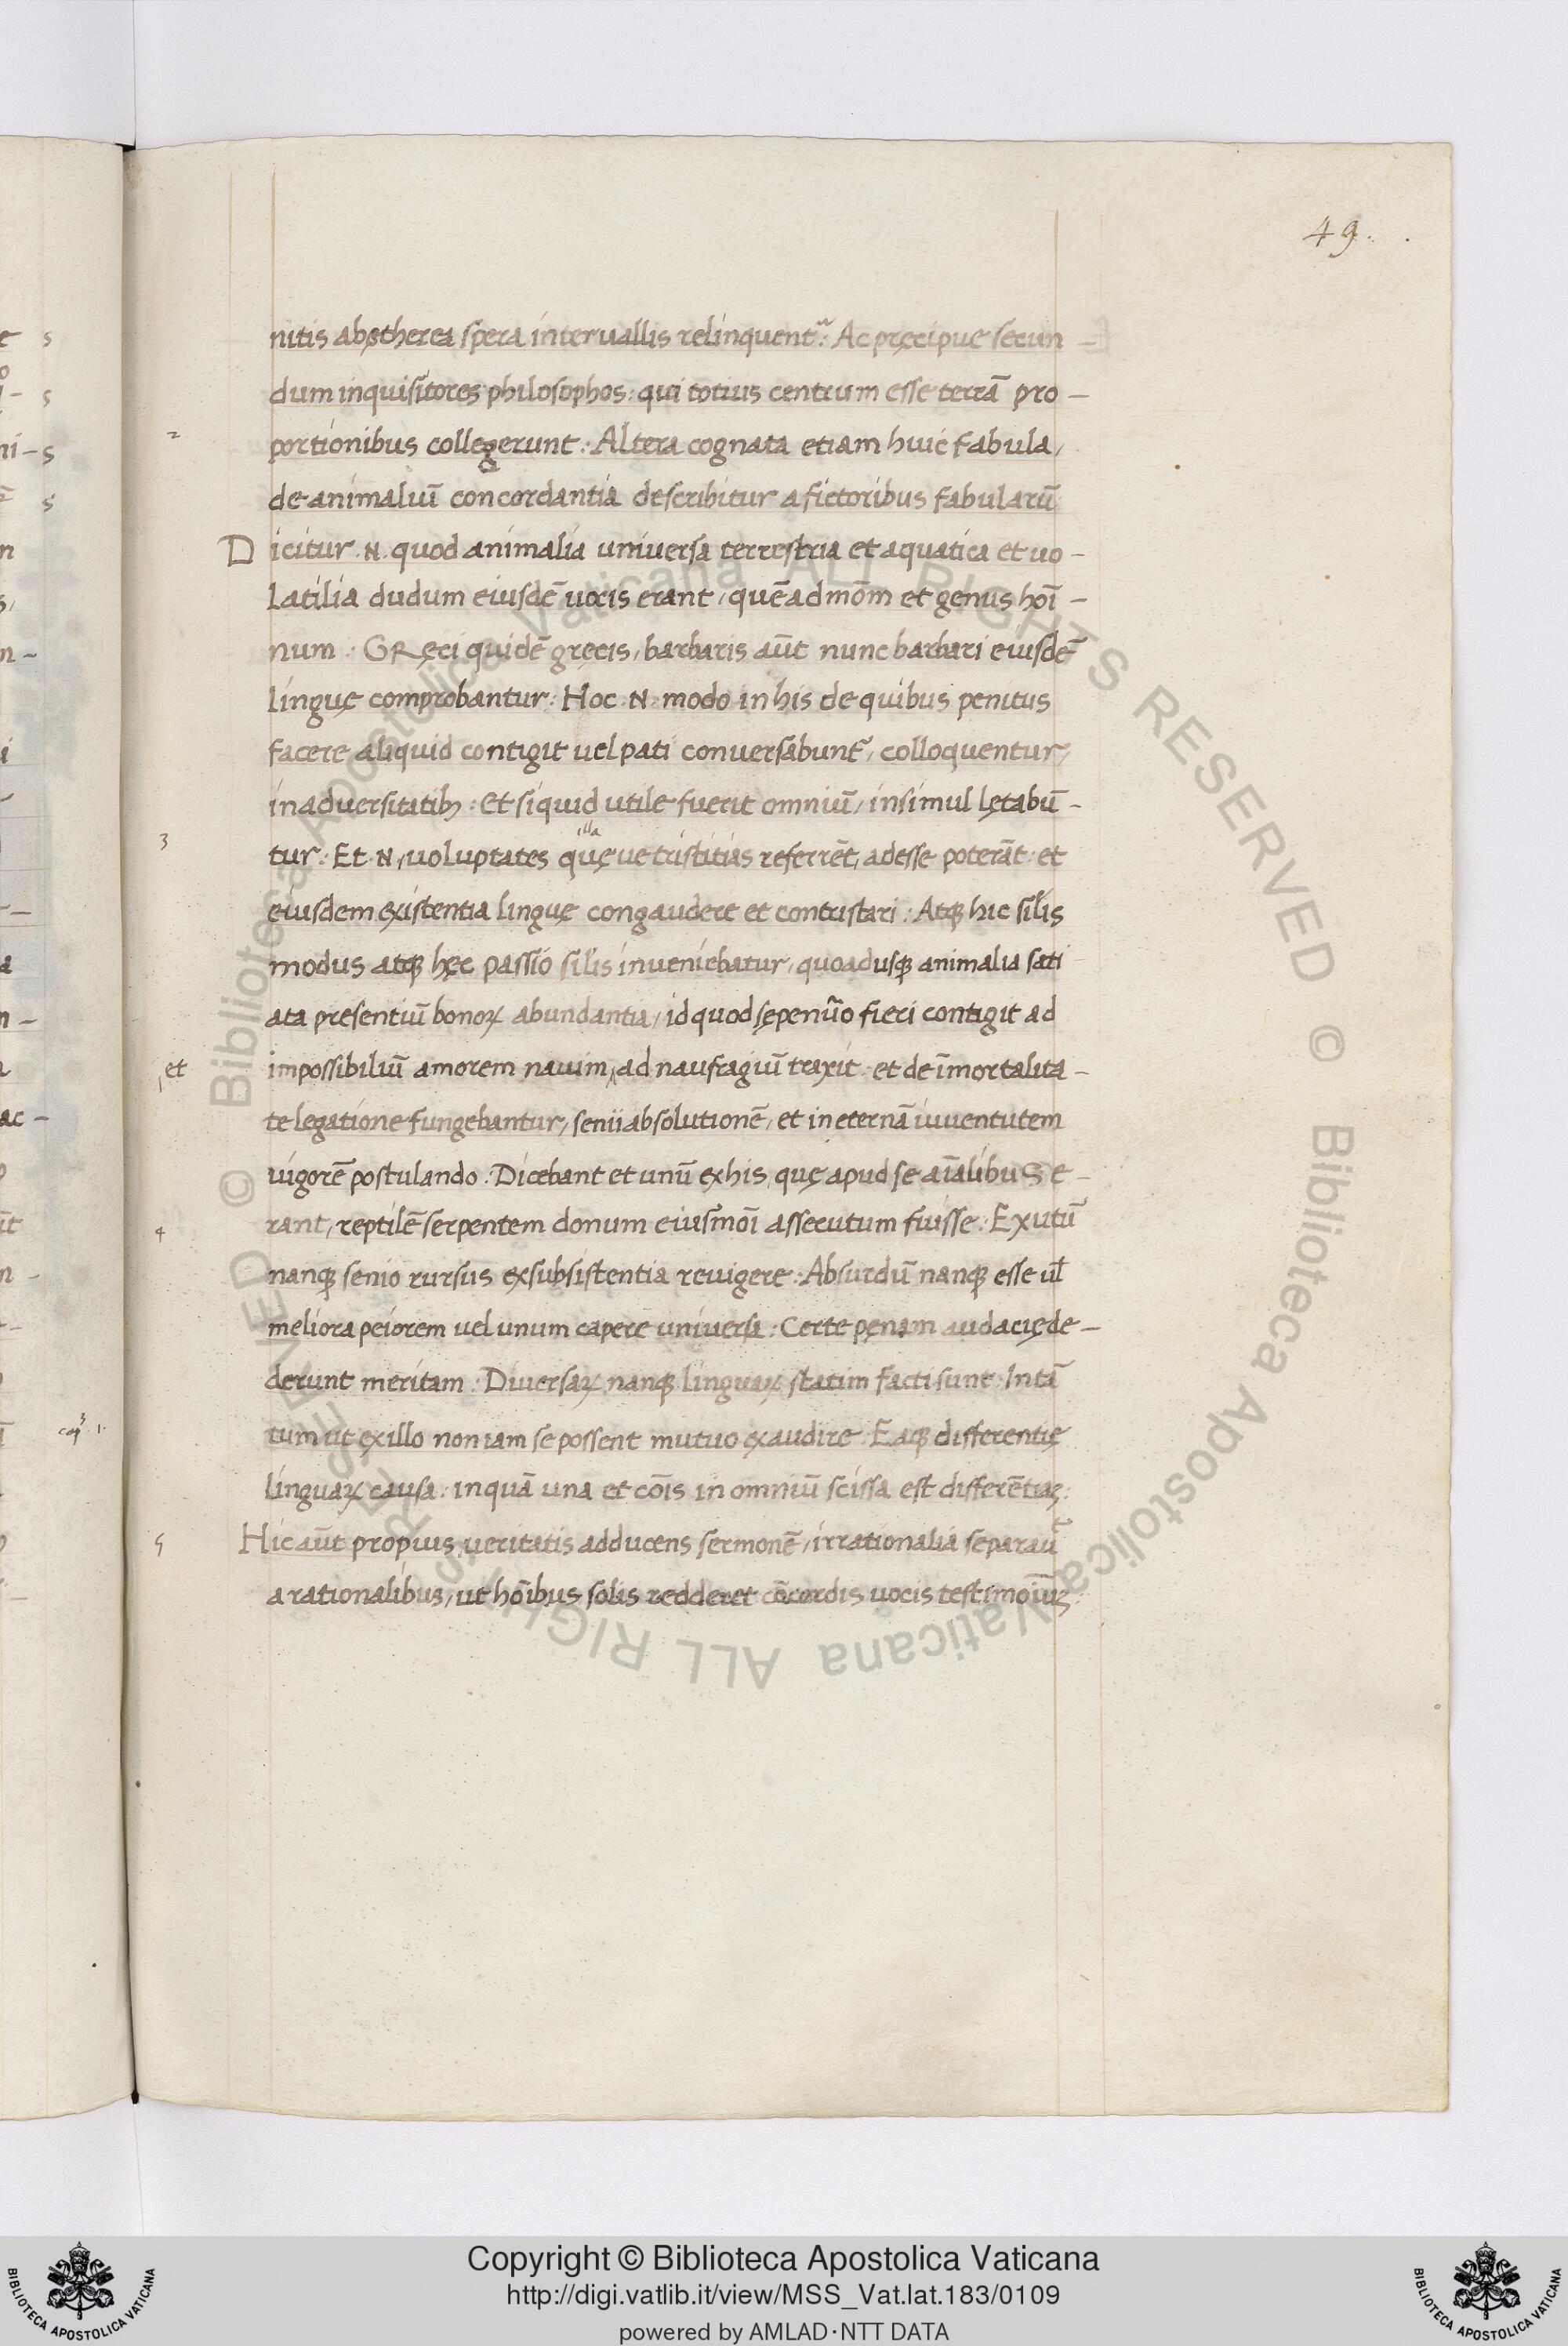 49.
nitis ab ętherea spera interuallis relinquent᷑: Ac pręcipue secun-
dum inquisitores philosophos: qui totius centrum esse terrā pro-
2
portionibus collegerunt: Altera cognata etiam huic fabula,
de animaliū concordantia describitur a fictoribus fabularū
Dicitur .N. quod animalia universa terrestria et aquatica et uo-
latilia dudum eiusdē uocis erant, quēadmōm et genus hoī-
num: GRęci quidē gręcis, barbaris aūt nunc barbari eiusdē
linguę comprobantur: Hoc .N. modo in his de quibus penitus
facere aliquid contigit uel pati conuersabunt᷑, colloquentur,
in aduersitatibȝ: Et siquid utile fuerit omniū, insimul lętabū-
illa
3
tur: Et .N. uoluptates quęue tristitias referrēt, adesse poterāt: et
eiusdem existentia linguę congaudere et contristari: Atqȝ hic silis
modus atqȝ hęc passio silis inueniebatur, quoadusqȝ animalia sati
ata presentiū bonoꝝ abundantia, id quod sępenūo fieri contigit ad
et
impossibiliū amorem nauim, ad naufragiū traxit: et de īmortalita-
te legatione fungebantur, senii absolutionē, et in eternā iuuentutem
uigorē postulando: Dicebant et unū ex his, quę apud se aīalibus e-
4
rant, reptilē serpentem donum eiusmōi assecutum fuisse: Exutū
nanqȝ senio rursus ex subsistentia reuigere: Absurdū nanqȝ esse ul̄
meliora peiorem uel unum capere universa: Certe pęnam audacię de-
derunt meritam: Diuersaꝝ nanqȝ linguaꝝ statim facti sunt: In tā
cap 3 1.
tum ut ex illo non iam se possent mutuo exaudire: Eaqȝ differentię
linguaꝝ causa: in quā una et cōis in omniū scissa est differētiaȝ:
5
Hic aūt propius ueritatis adducens sermonē, irrationalia separauͭ
a rationalibus, ut hoībus solis redderet cōcordis uocis testimoīuȝ:
© Biblioteca Apostolica Vaticana ALL RIGHTS RESERVED © Biblioteca Apostolica Vaticana ALL RIGHTS RESERVED
Copyright © Biblioteca Apostolica Vaticana
http://digi.vatlib.it/view/MSS_Vat.lat.183/0109
powered by AMLAD·NTT DATA
BIBLIOTECA APOSTOLICA VATICANA
BIBLIOTECA APOSTOLICA VATICANA